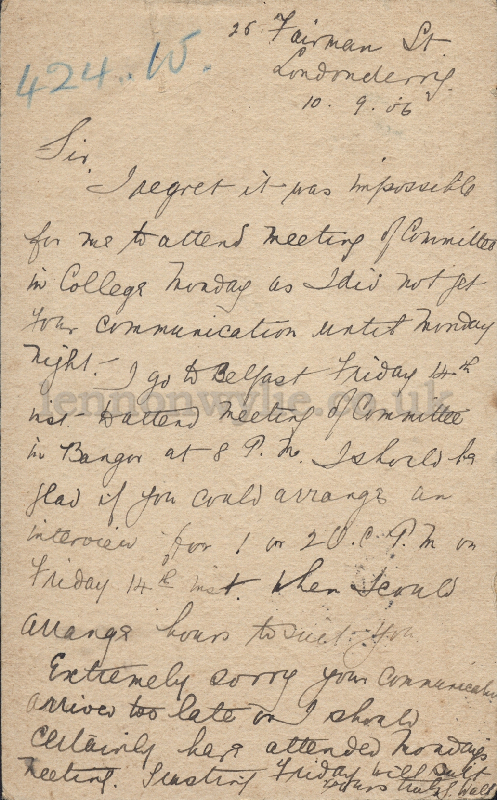 26 Fairman St.
Londonderry.
10. 9. 06
424.W.
Sir,
I regret it was impossible
for me to attend meeting of Committee
in College Monday as I did not get
your communication until Monday
night. — I go to Belfast Friday 14th
inst - to attend meeting of Committee
in Bangor at 8 P.M. I should be
glad if you could arrange an
interview for 1 or 2 O.C. P.M on
Friday 14th inst. when I could
arrange hours to suit you
Extremely sorry your communication
arrived too late or I should
certainly have attended Mondays
meeting. Trusting Friday will suit
yours
lennonwylie.co.uk